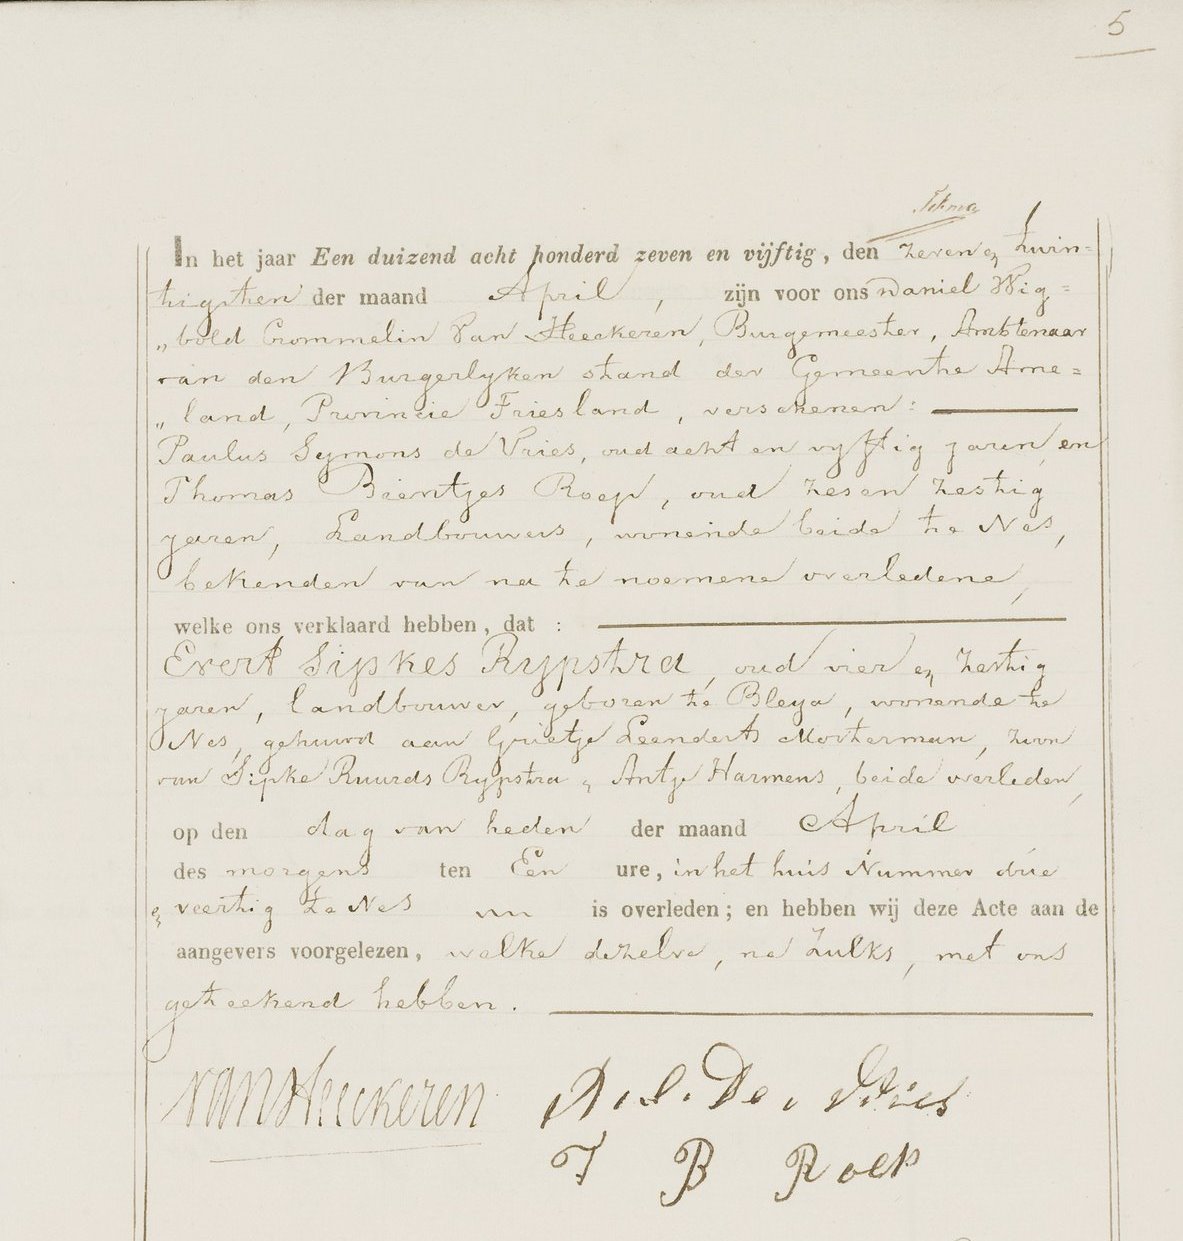 5
In het jaar Een duizend acht honderd zeven en vijftig, den zeven en twin=
tigsten der maand April, zijn voor ons Daniel Wig=
„bold Crommelin Van Heeckeren, Burgemeester, Ambtenaar
van den Burgerlyken stand der Gemeente Ame=
„land, Provincie Friesland, verschenen:
Paulus Symons de Vries, oud acht en vyftig jaren, en
Thomas Bientjes Roep, oud zes en zestig
jaren, Landbouwers, wonende beide te Nes,
bekenden van na te noemene overledene,
welke ons verklaard hebben, dat :
Evert Sipkes Rypstra, oud vier en zestig
jaren, landbouwer, geboren te Bleya, wonende te
Nes, gehuwd aan Grietje Leenderts Mosterman, zoon
van Sipke Ruurds Rypstra en Antje Harmens, beide overleden,
op den dag van heden der maand April
des morgens ten Een ure, in het huis Nummer drie
en veertig te Nes is overleden; en hebben wij deze Acte aan de
aangevers voorgelezen, welke dezelve, na zulks, met ons
geteekend hebben.
van Heeckeren P. S. De Vries
T B Roep